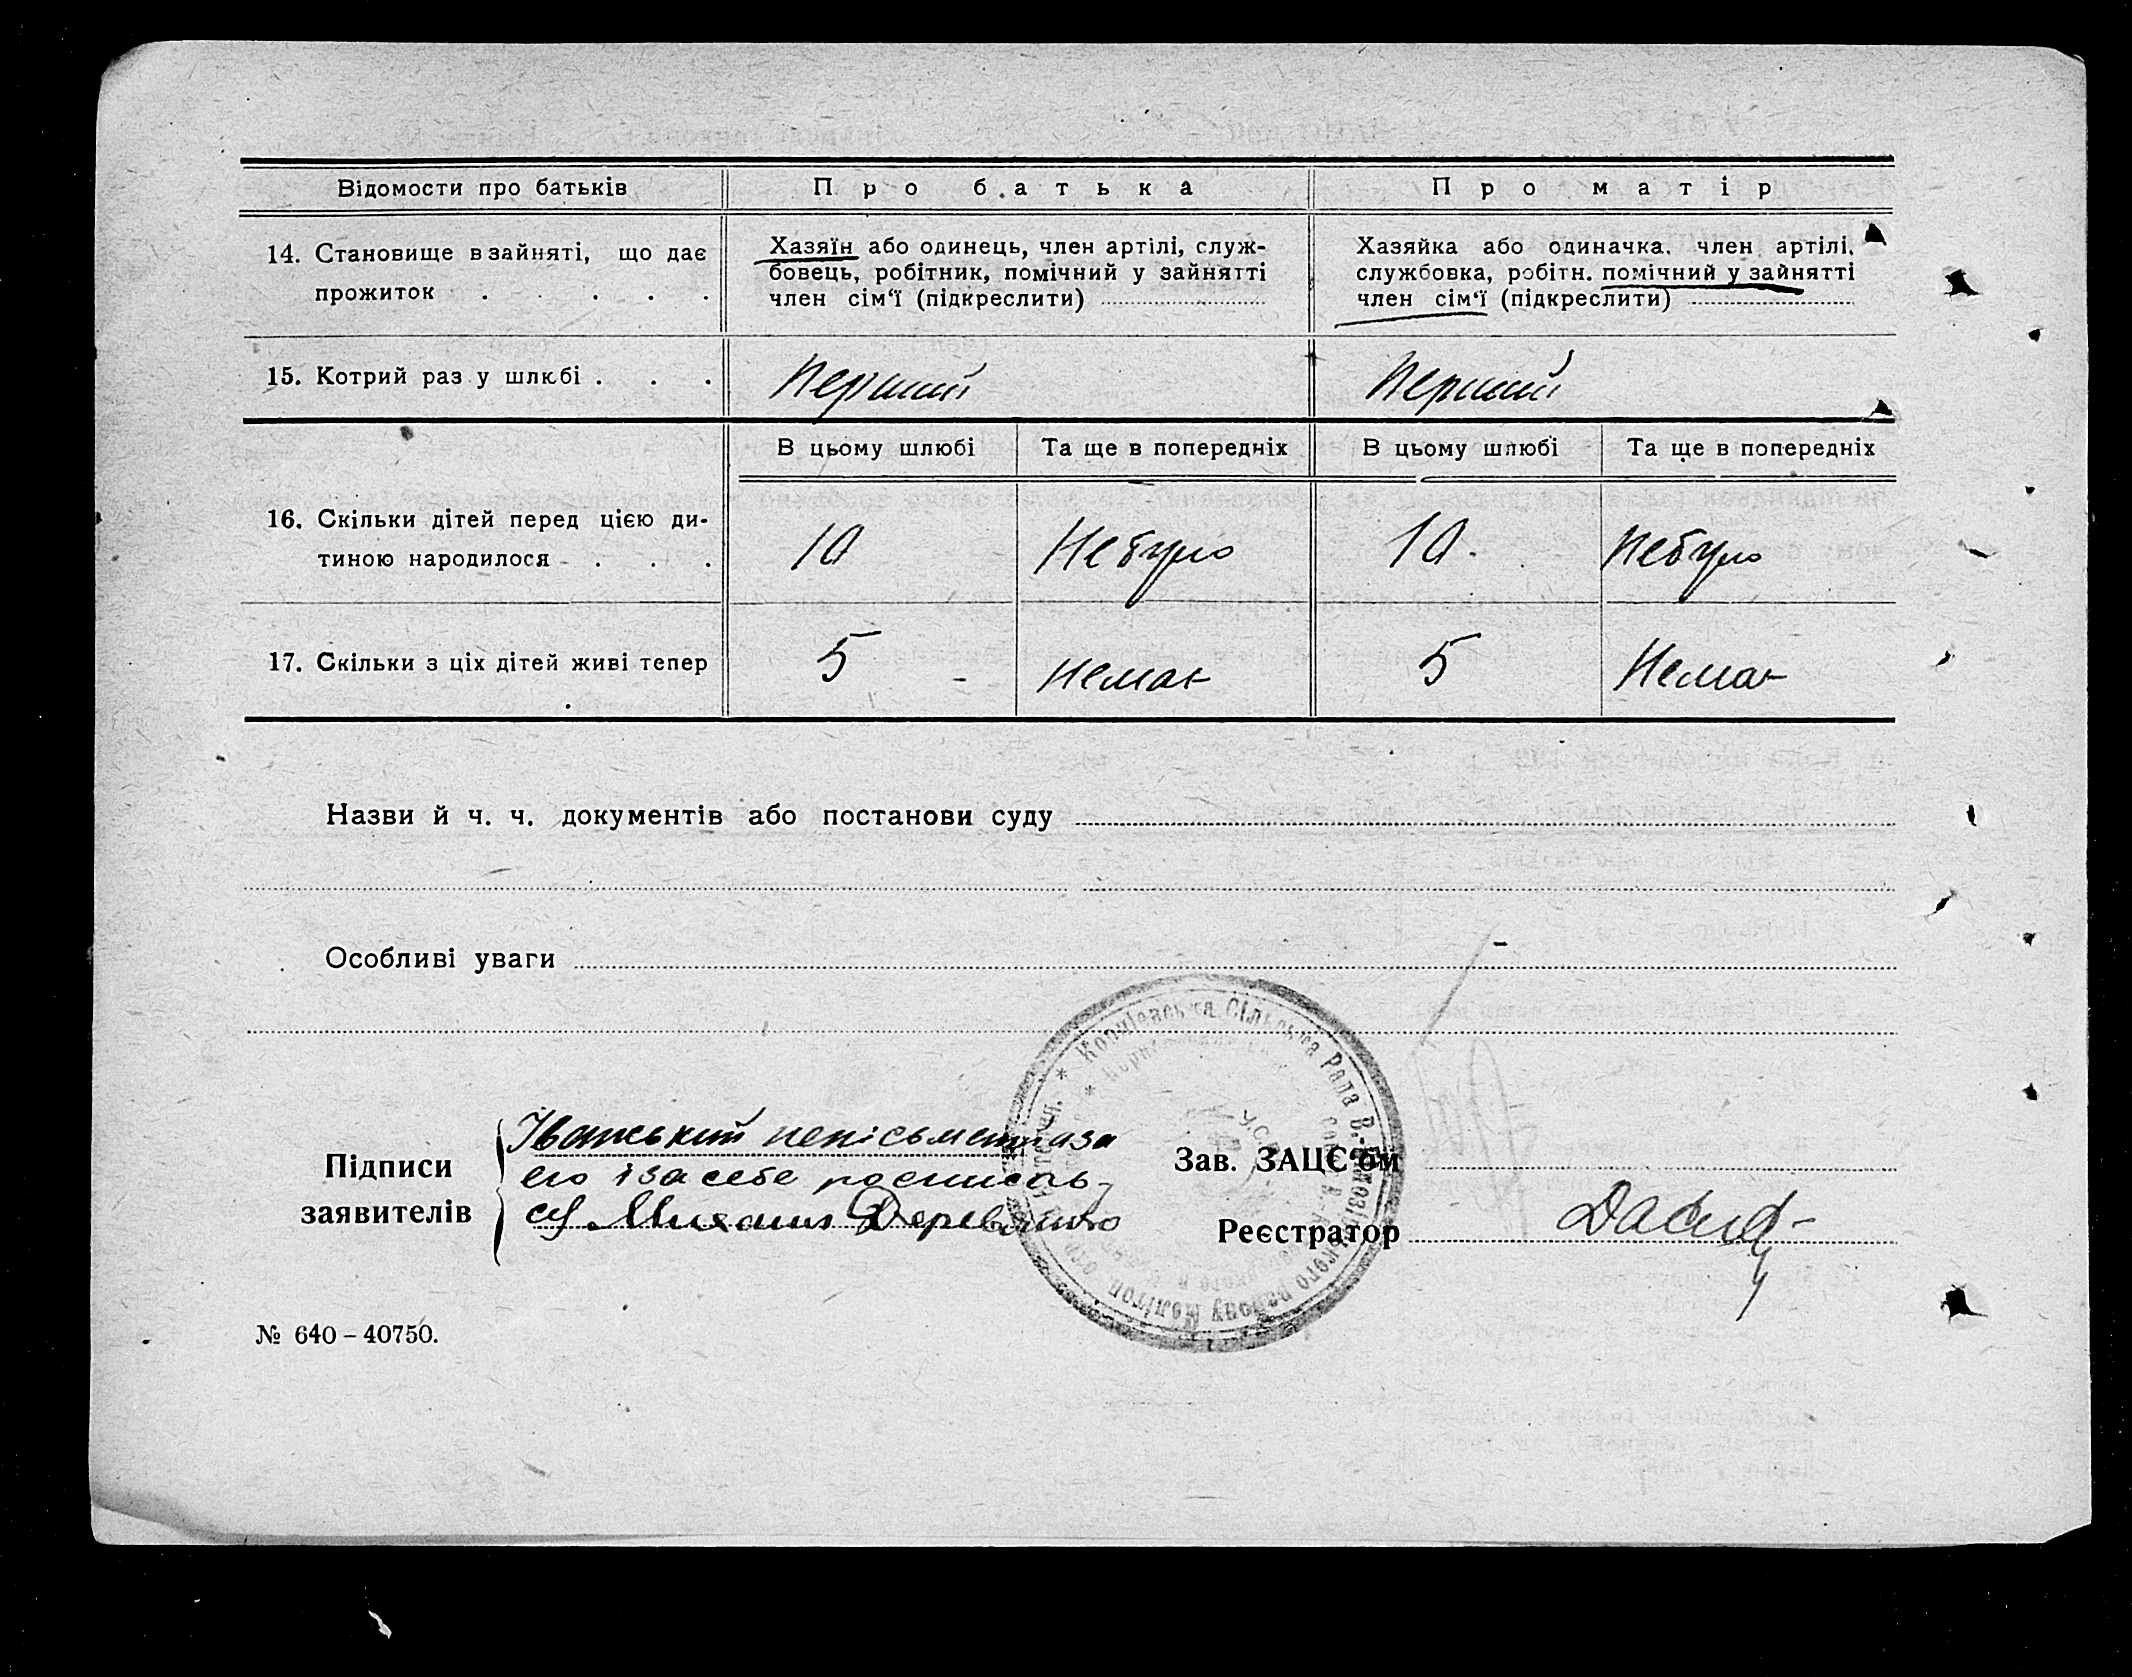 Відомости про батьків
Про батька
Про матір
14. Становище в зайняті, що дає
прожиток . . . . .
Хазяїн або одинець, член артілі, служ-
бовець, робітник, помічний у зайнятті
член сім‘ї (підкреслити)
Хазяйка або одиначка, член артілі,
службовка, робітн. помічний у зайнятті
член сім‘ї (підкреслити)
15. Котрий раз у шлюбі . . .
Перший
Перший
В цьому шлюбі
Та ще в попередніх
В цьому шлюбі
Та ще в попередніх
16. Скільки дітей перед цією ди-
тиною народилося . . .
10
Небуло
10.
Небуло
17. Скільки з ціх дітей живі тепер
5
Немає
5
Немає
Назви й ч. ч. документів або постанови суду
Особливі уваги
Підписи
заявителів
неписьмен за
его і за себе росписав-
ся Михаил Деревянко
Зав. ЗАЦС‘ом
Реєстратор
Сільська Рада
району
№ 640–40750.